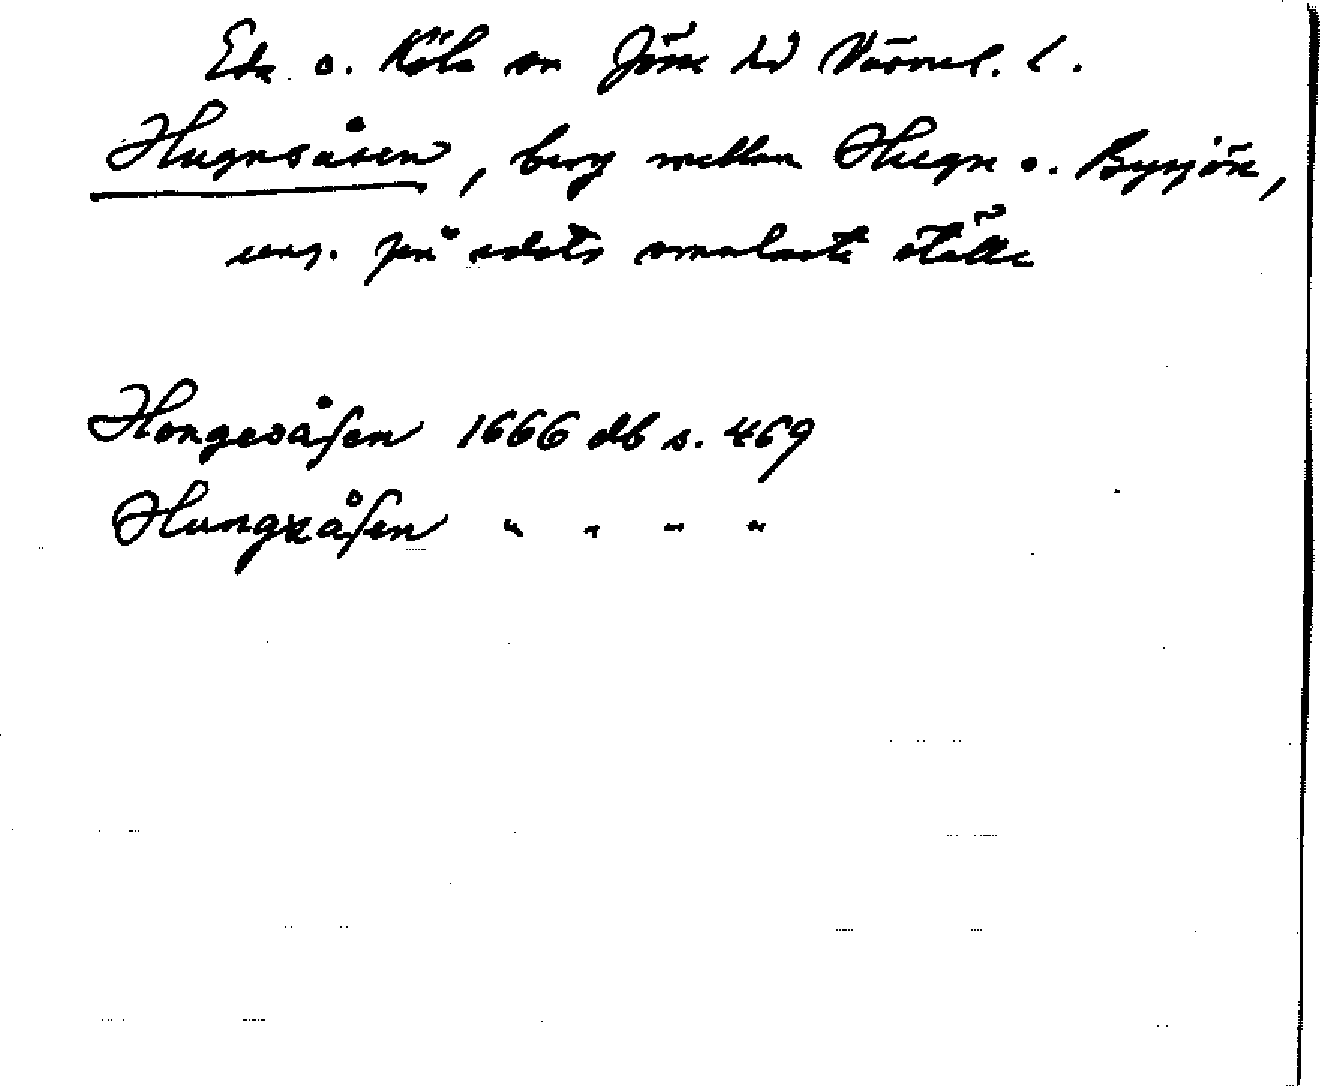 Eda o. Köla sn Jösse hd Värml. l.
Hugnsåsen, berg mellan Hugn o. Bysjön,
ung. på edets smalaste ställe
Hongesåsen 1666 db s. 469
Hungzåsen " " " "